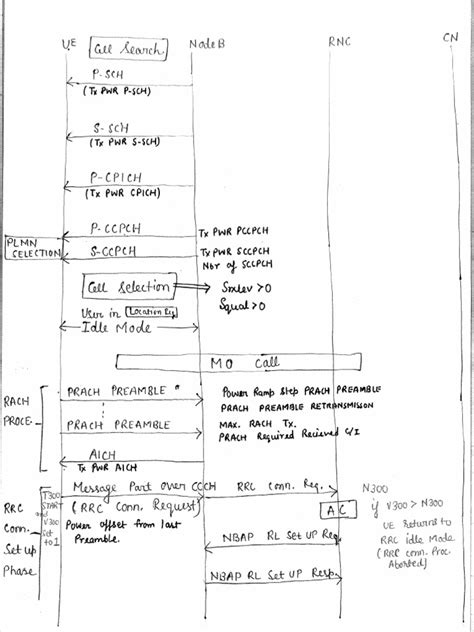 UE
Cell Search
Node B
RNC
CN
P-SCH
(Tx PWR P-SCH)
S-SCH
(Tx PWR S-SCH)
P-CPICH
(Tx PWR CPICH)
P-CCPCH
Tx PWR PCCPCH
PLMN
SELECTION
S-CCPCH
Tx PWR SCCPCH
Nbr of SCCPCH
Cell Selection
Squal>0
User in
Idle Mode
MO Call
RACH
PROCE.
PRACH PREAMBLE
Power Ramp Step PRACH PREAMBLE
PRACH PREAMBLE RETRANSMISSON
PRACH PREAMBLE
MAX. RACH Tx.
PRACH Required Recieved C/I
AICH
Tx PWR AICH
RRC
Conn.
Set up
Phase
T300
START
and
V300
Set
to 1
Message Part over CCCH
(RRC Conn. Request)
Power offset from last
Preamble.
RRC Conn. Req.
AC
N300
if V300 > N300
UE Returns to
RRC idle Mode
(RRC conn. Proc.
Aborted)
NBAP RL Set UP Req.
NBAP RL Set UP Resp.